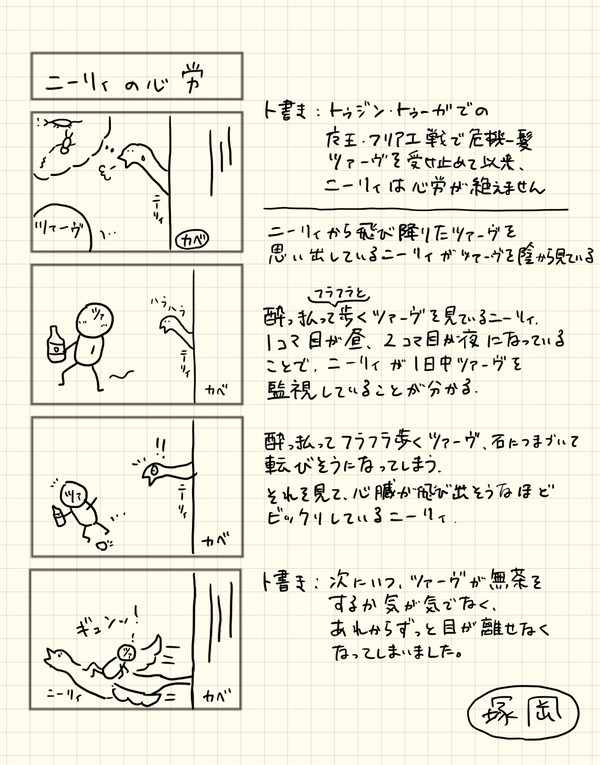 ニーリィの心労
ト書き：トゥジン・トゥーガでの
夜王・フリアエ戦で危機一髪
ツァーヴを受け止めて以来、
ニーリィは心労が絶えません
ツァーヴ
ニーリィ
カベ
ニーリィから飛び降りたツァーヴを
思い出しているニーリィがツァーヴを陰から見ている
フラフラと
酔っ払って歩くツァーヴを見ているニーリィ.
1コマ目が昼、2コマ目が夜になっている
ことで、ニーリィが1日中ツァーヴを
監視していることが分かる.
ツァ
ハラハラ
ニーリィ
カベ
酔っ払ってフラフラ歩くツァーヴ、石につまづいて
転びそうになってしまう.
それを見て、心臓が飛び出そうなほど
ビックリしているニーリィ.
!!
ツァ
ニーリィ
カベ
ト書き：次にいつ、ツァーヴが無茶を
するか気が気でなく、
あれからずっと目が離せなく
なってしまいました。
ギュンッ!
ツァ
ニーリィ
カベ
塚岡